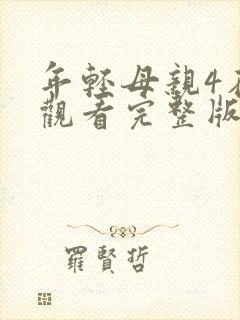 年輕母親4在
觀看完整版
羅賢哲